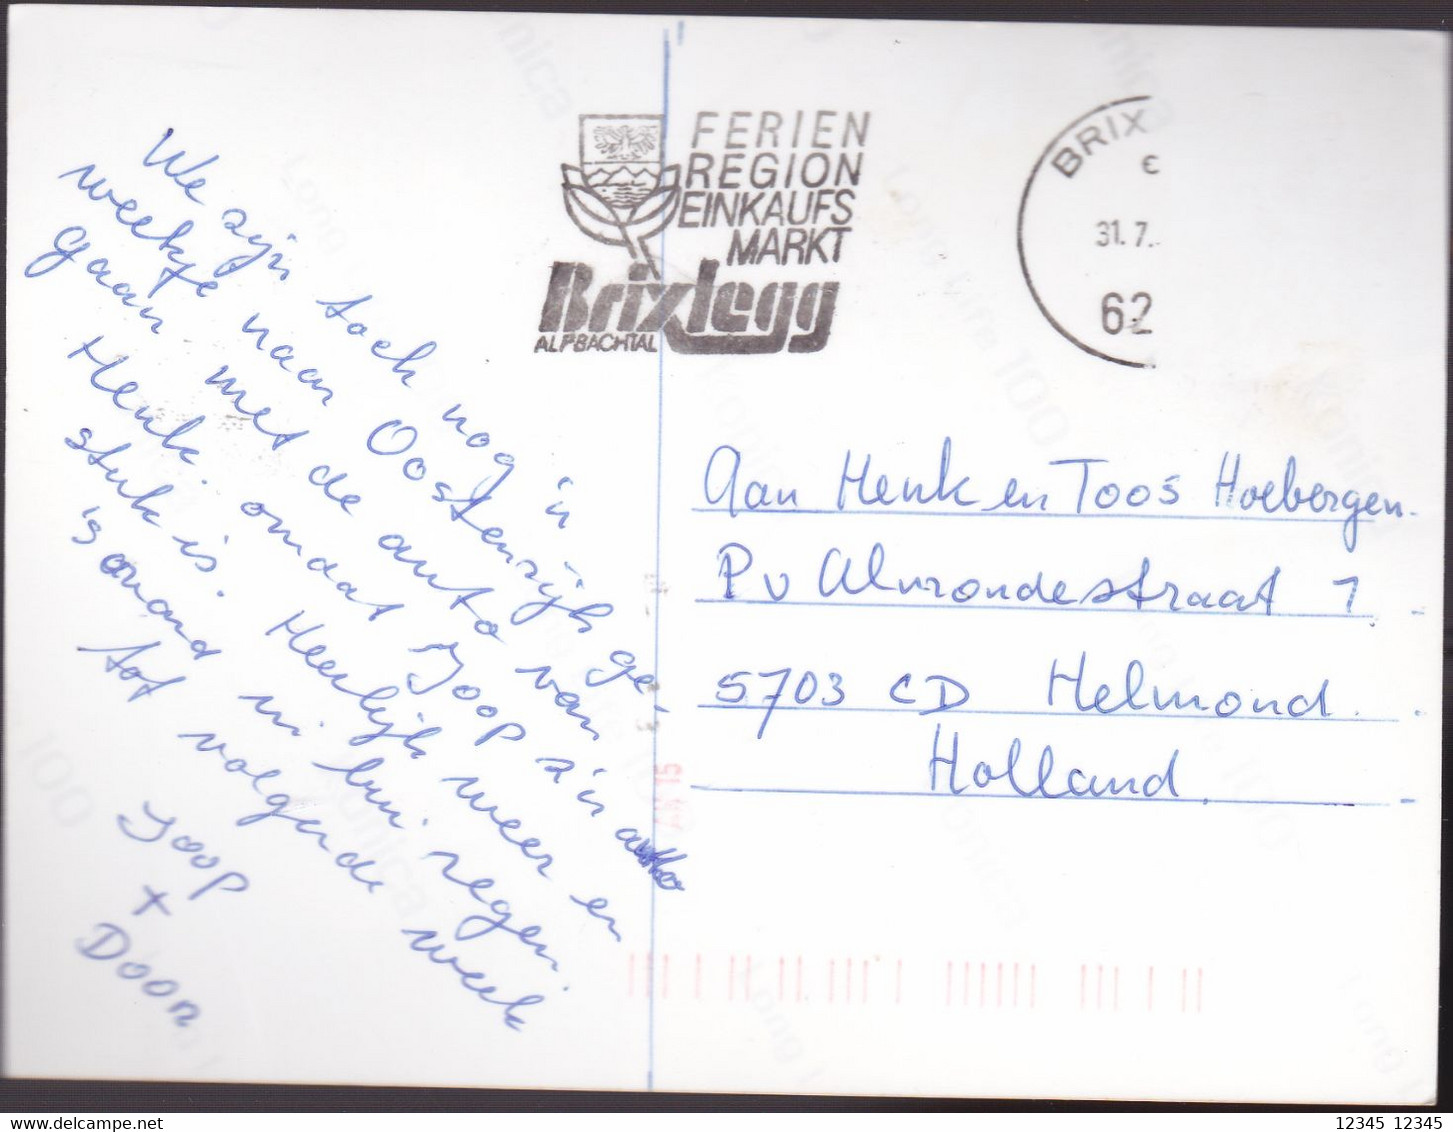 We zijn toch nog 'n
weekje naar Oostenrijk ge-
gaan met de auto van
Henk. omdat Joop z'n auto
stuk is. Heerlijk weer en
's avond 'n bui regen.
tot volgende week
Joop
+
Doon
FERIEN
REGION
EINKAUFS
MARKT
Brixlegg
ALPBACHTAL
BRIX
31.7.
62
Aan Henk en Toos Hoebergen.
Pv Almondestraat 1
5703 CD Helmond.
Holland
Konica
100
12345 12345